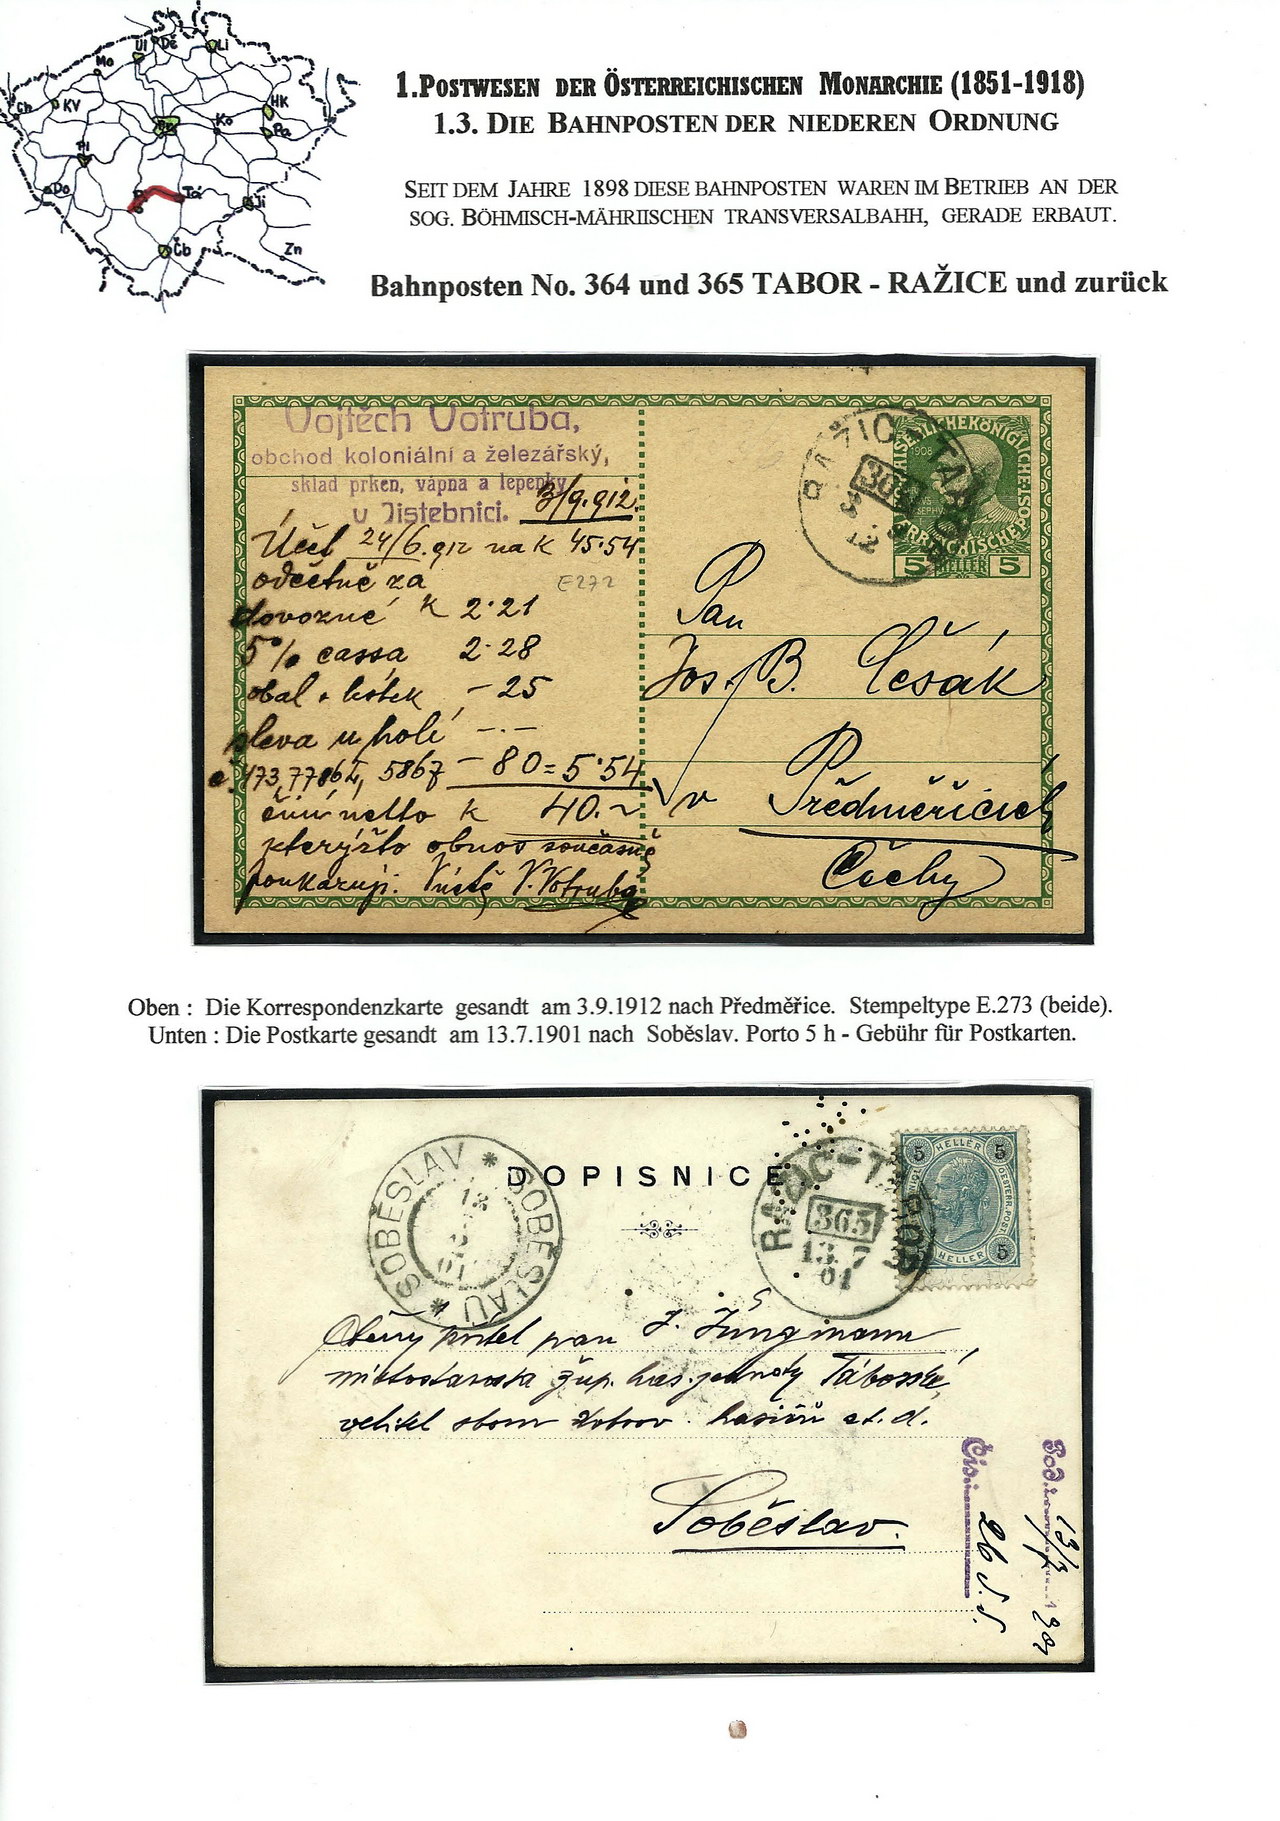 Mo
Úl
Dě
Li
Ch
KV
HK
Ko
Pa
Pl
Do
Tá
Ji
Čb
Zn
1. POSTWESEN DER ÖSTERREICHISCHEN MONARCHIE (1851-1918)
1.3. DIE BAHNPOSTEN DER NIEDEREN ORDNUNG
SEIT DEM JAHRE 1898 DIESE BAHNPOSTEN WAREN IM BETRIEB AN DER
SOG. BÖHMISCH-MÄHRIISCHEN TRANSVERSALBAHH, GERADE ERBAUT.
Bahnposten No. 364 und 365 TABOR - RAŽICE und zurück
Vojtěch Votruba,
obchod koloniální a železářský,
sklad prken, vápna a lepenky
u Jistebnici.
3/9.912.
Účet 24/6.912 na K 45·54
odčetně za
dovozné K 2·21
5% cassa 2·28
obal + lístek - 25
sleva u holí - · -
č. 173, 5867 - 80 = 5·54
činí netto K 40.-
kterýžto obnos současně
poukazuji. V. Votruba
E272
RAŽIC-TABOR
HELLER
5 5
1908
Pan
Jos. B. Češák
v Předměřicích
Čechy
Oben : Die Korrespondenzkarte gesandt am 3.9.1912 nach Předměřice. Stempeltype E.273 (beide).
Unten : Die Postkarte gesandt am 13.7.1901 nach Soběslav. Porto 5 h - Gebühr für Postkarten.
SOBĚSLAV * SOBĚSLAU *
01
DOPISNICE
RAŽIC-TABOR
365
13 7
01
5 HELLER 5
OESTERR. POST
HELLER 5
pan J. Jüngmann
místostarosta žup. has. jednoty Táborské,
velitel sbor. dobrov. hasičů a t. d.
Soběslav.
Čís.: 26
Dod. 13/7 190